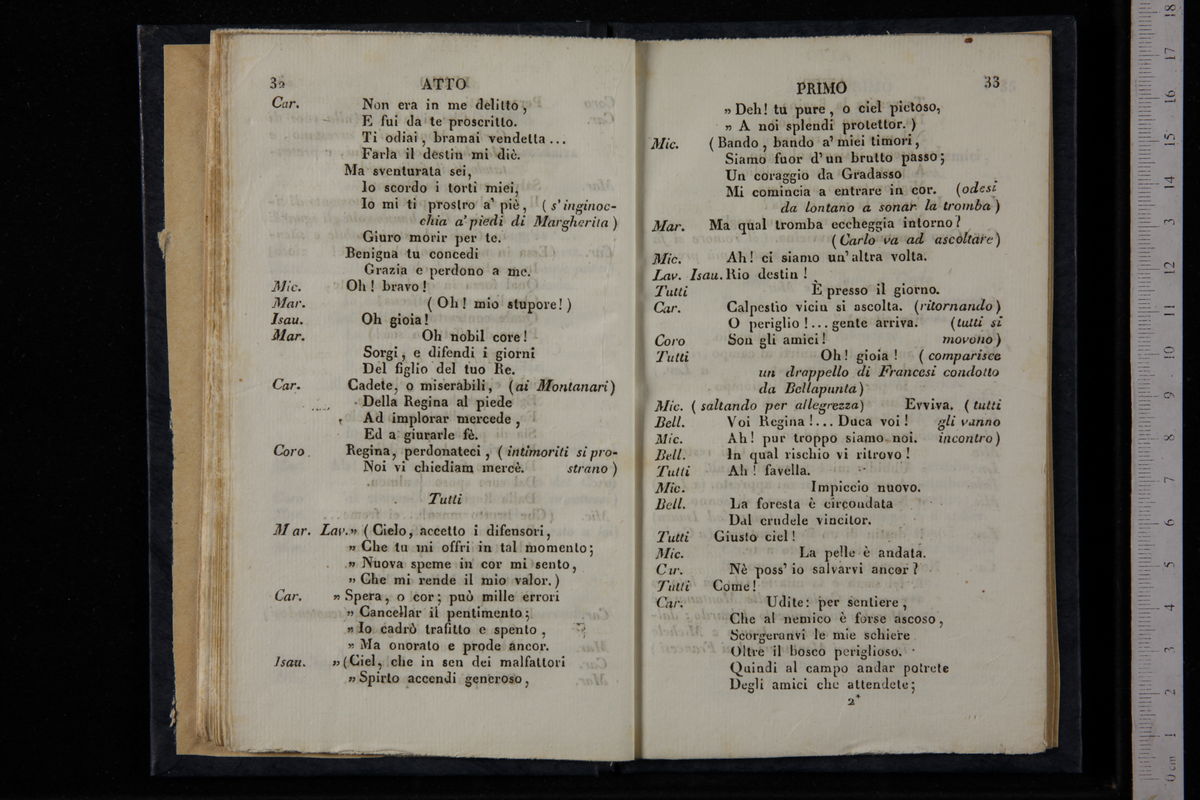 32 ATTO
Car. Non era in me delitto,
E fui da te proscritto.
Ti odiai, bramai vendetta...
Farla il destin mi diè.
Ma sventurata sei,
Io scordo i torti miei,
Io mi ti prostro a' piè, (s'inginoc-
chia a' piedi di Margherita)
Giuro morir per te.
Benigna tu concedi
Grazia e perdono a me.
Mic. Oh! bravo!
Mar. (Oh! mio stupore!)
Isau. Oh gioia!
Mar. Oh nobil core!
Sorgi, e difendi i giorni
Del figlio del tuo Re.
Car. Cadete, o miserabili, (ai Montanari)
Della Regina al piede
Ad implorar mercede,
Ed a giurarle fè.
Coro. Regina, perdonateci, (intimoriti si pro-
Noi vi chiediam mercè. strano)
Tutti
Mar. Lav. » (Cielo, accetto i difensori,
» Che tu mi offri in tal momento;
» Nuova speme in cor mi sento,
» Che mi rende il mio valor.)
Car. » Spera, o cor; può mille errori
» Cancellar il pentimento;
» Io cadrò trafitto e spento,
» Ma onorato e prode ancor.
Isau. » (Ciel, che in sen dei malfattori
» Spirto accendi generoso,
PRIMO 33
» Deh! tu pure, o ciel pietoso,
» A noi splendi protettor.)
Mic. (Bando, bando a' miei timori,
Siamo fuor d'un brutto passo;
Un coraggio da Gradasso
Mi comincia a entrare in cor. (odesi
da lontano a sonar la tromba)
Mar. Ma qual tromba eccheggia intorno?
(Carlo va ad ascoltare)
Mic. Ah! ci siamo un'altra volta.
Lav. Isau. Rio destin!
Tutti È presso il giorno.
Car. Calpestio vicin si ascolta. (ritornando)
O periglio!... gente arriva. (tutti si
Coro Son gli amici! movono)
Tutti Oh! gioia! (comparisce
un drappello di Francesi condotto
da Bellapunta)
Mic. (saltando per allegrezza) Evviva. (tutti
Bell. Voi Regina!... Duca voi! gli vanno
Mic. Ah! pur troppo siamo noi. incontro)
Bell. In qual rischio vi ritrovo!
Tutti Ah! favella.
Mic. Impiccio nuovo.
Bell. La foresta è circondata
Dal crudele vincitor.
Tutti Giusto ciel!
Mic. La pelle è andata.
Car. Nè poss' io salvarvi ancor?
Tutti Come!
Car. Udite: per sentiere,
Che al nemico è forse ascoso,
Scorgeranvi le mie schiere
Oltre il bosco periglioso.
Quindi al campo andar potrete
Degli amici che attendete;
2*